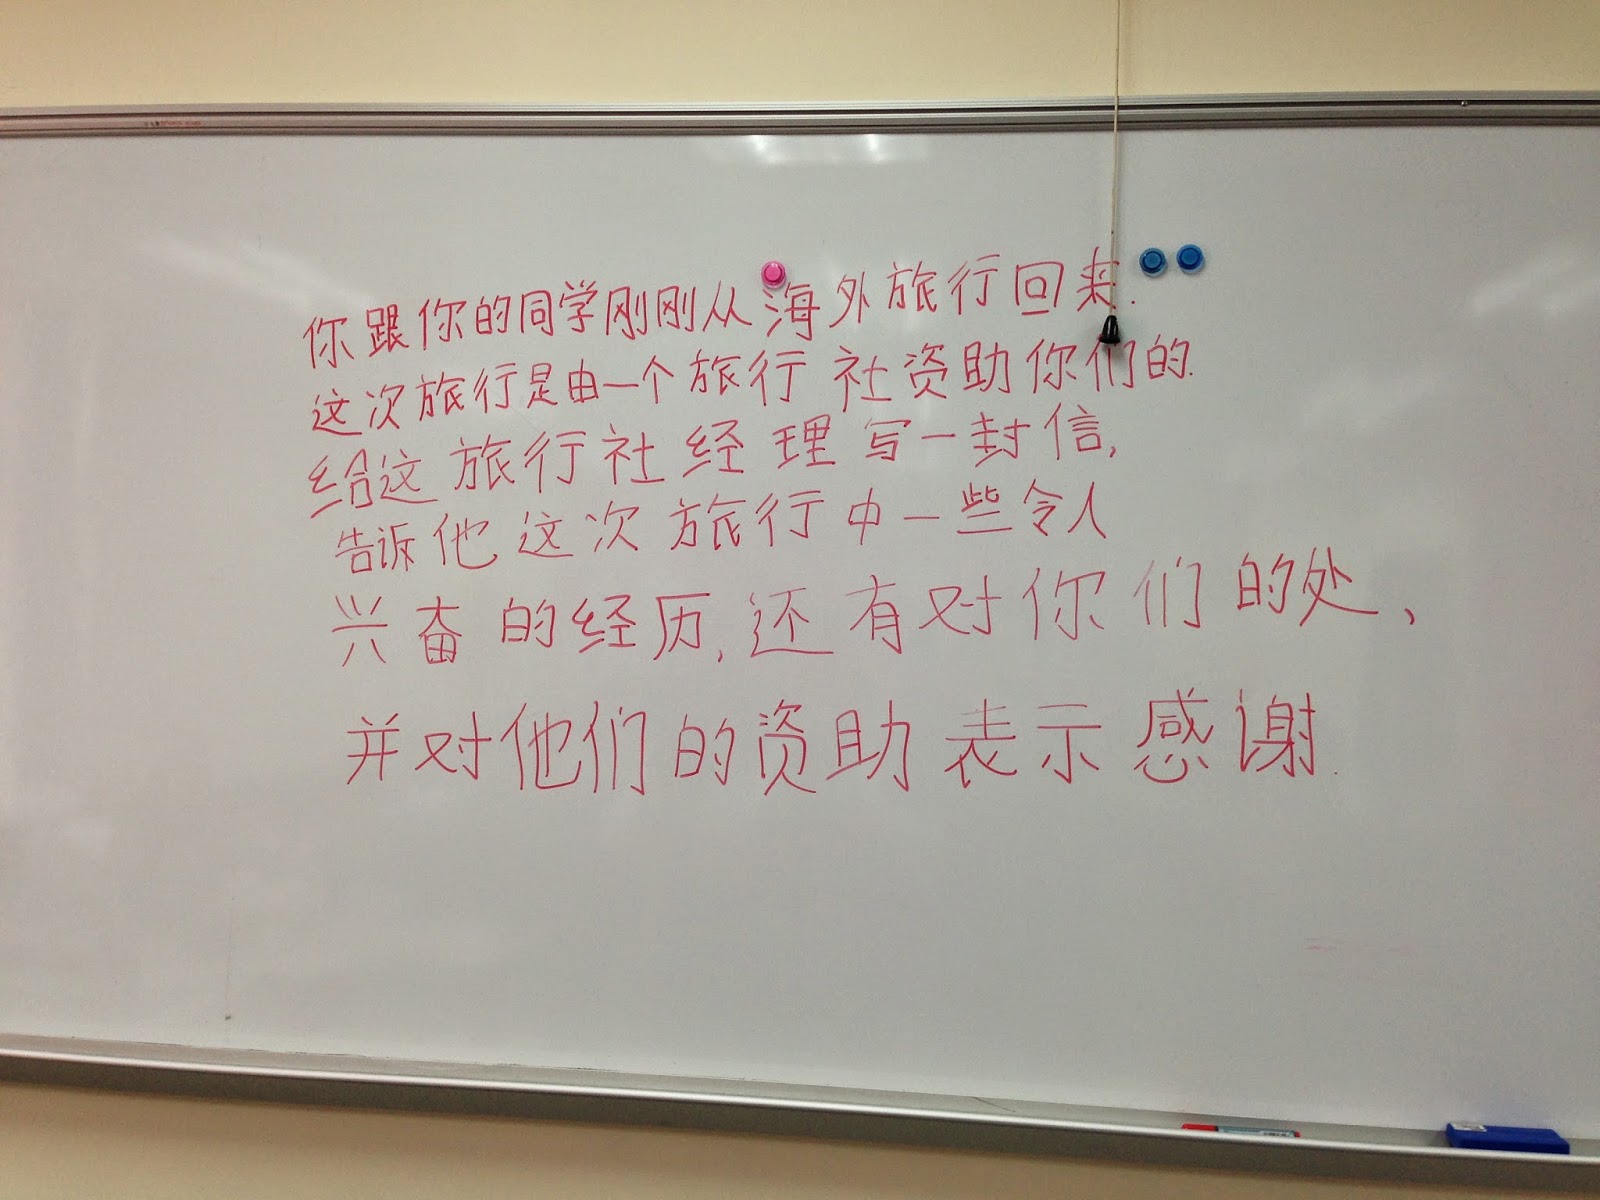 你跟你的同学刚刚从海外旅行回来.
这次旅行是由一个旅行社资助你们的.
给这旅行社经理写一封信,
告诉他这次旅行中一些令人
兴奋的经历,还有对你们的处、
并对他们的资助表示感谢.